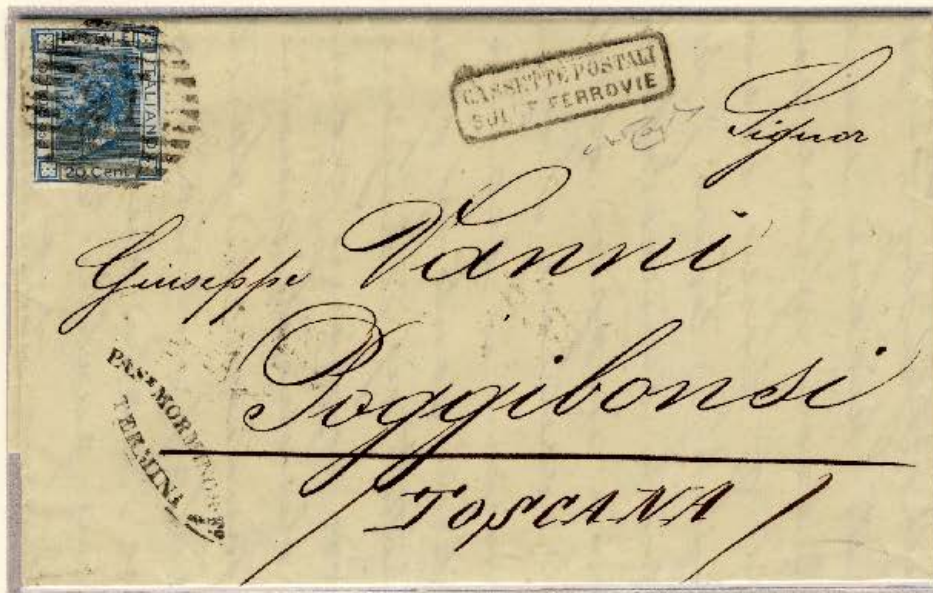 POSTALE
ITALIANO
20 Cent
CASSETTE POSTALI
SULLE FERROVIE
Signor
Giuseppe Vanni
Poggibonsi
TOSCANA
TERMINI